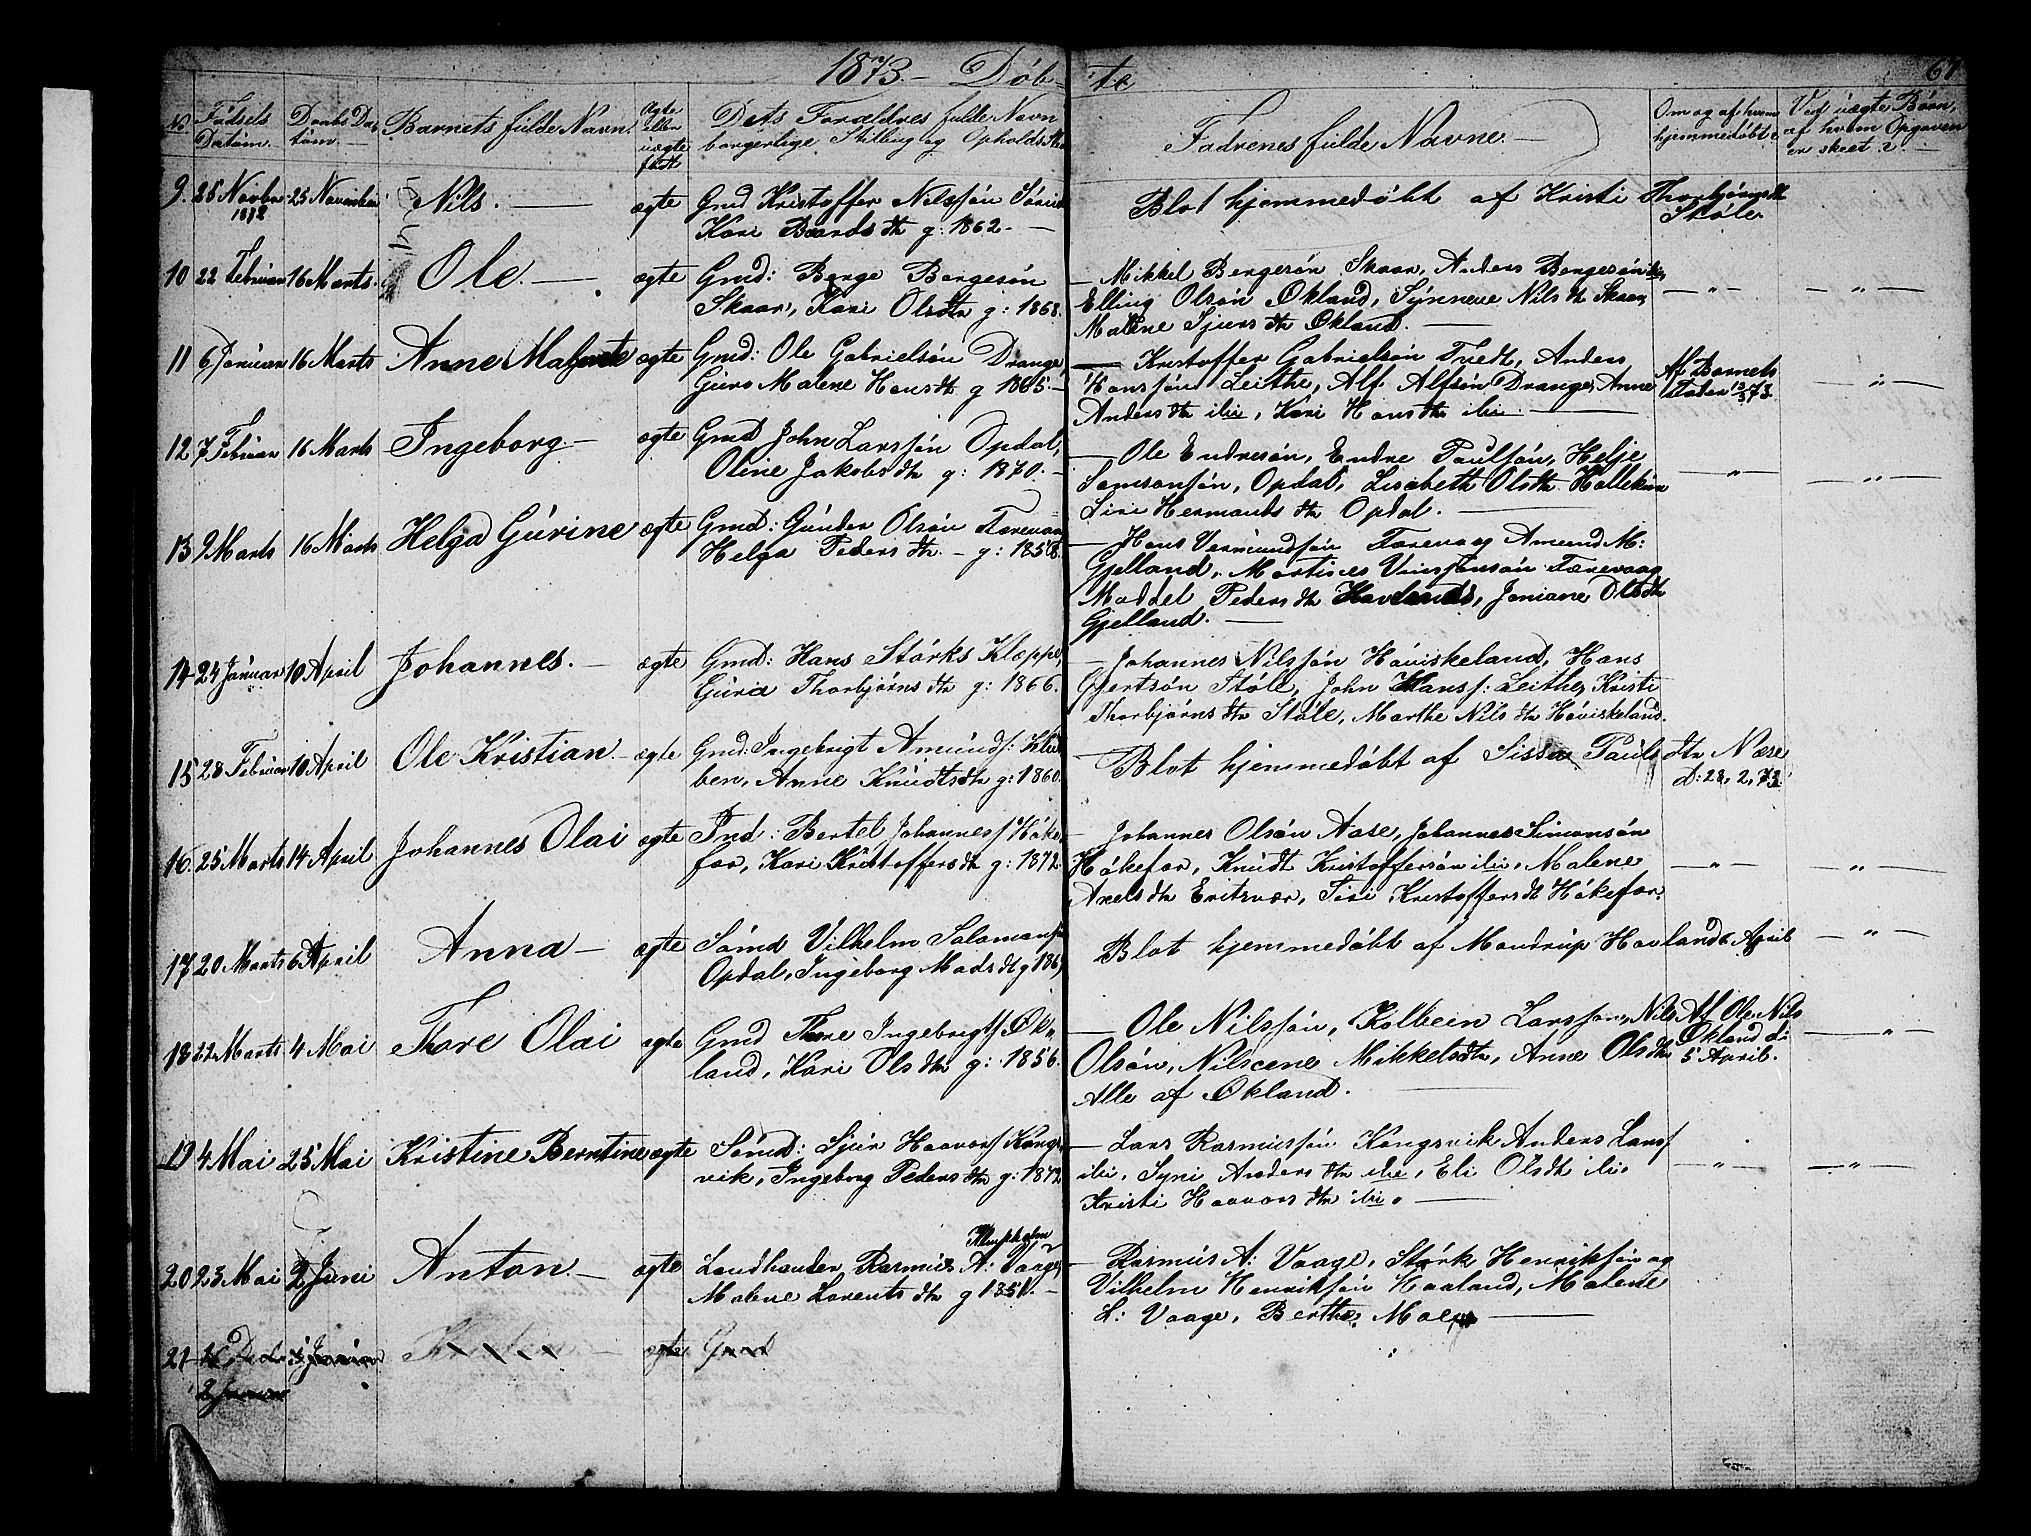 1873. — Døb-
te
67
No
Fødsels Datum.
Daabs Datum.
Barnets fulde Navn.
Ægte eller uægte født
Dets Forældres fulde Navn borgerlige Stilling og Opholds
Fadrenes fulde Navne. —
Om og af hvem hjemmedøbt
Ved uægte Børn, af hvem Opgaven er skeet?
9. 25 Novbr 1872 25 November Nils. — ægte Gmd Kristoffer Nilssøn
Kari Baards dtr g: 1862. —
Blot hjemmedøbt af Kristi Thorbjørnsdt
Støle.
10 22 Februar 16 Marts. Ole. — ægte Gmd: Børge Børgesøn
Skaar, Kari Olsdtr g: 1868.
— Mikkel Bergesøn Skaar, Anders Bergesøn ibi,
Elling Olsøn Økland, Synneve Nils dtr Skaar,
Malene Sjurs dtr Økland. —
11 6 Januar 16 Marts Anne Malene ægte Gmd: Ole Gabrielsøn Drange,
Guro Malene Hans dtr g 1865. —
— Kristoffer Gabrielsøn Tvedt, Anders
Hanssøn Leithe, Alf Alfsøn Drange, Anne
Anders dtr ibi, Kari Hans dtr ibi. —
Af Barnets
Fader
12 7 Februar 16 Marts Ingeborg. — ægte Gmd John Larssøn Opdal,
Oline Jakobs dtr g: 1870. —
— Ole Endresøn, Endre Paulsøn, Helje
Samsonsøn, Opdal, Lisabeth Olsdtr
Siri Hermunds dtr Opdal. —
13 9 Marts 16 Marts Helga Gurine ægte Gmd: Gunder Olsøn Færevaag
Helga Peders dtr. — g: 1858.
— Hans Vermundsøn Færevaag Amund M:
Gjelland, Martines Færevaag
Maddel Peders dtr Hovland, Joniane Olsdtr
Gjelland. —
14 24 Januar 10 April Johannes. — ægte Gmd: Hans Størks Kleppe,
Guria Thorbjørns dtr g: 1866.
— Johannes Nilssøn Høviskeland, Hans
Gjertsøn Støle, John Hans s: Leithe, Kristi
Thorbjørns dtr Støle, Marthe Nils dtr Høviskeland.
15 28 Februar 10 April Ole Kristian. — ægte Gmd: Ingebrigt Amunds: Klub
ben, Anne Knudts dtr g: 1860.
Blot hjemmedøbt af Sissa Pauls dtr Næse
D: 28, 2, 73.
16. 25 Marts 14 April Johannes Olai ægte Ind: Bertel Johannes s Høke-
for, Kari Kristoffers dt g: 1872.
— Johannes Olsøn Aase, Johannes Simonsøn
Høkefor, Knudt Kristoffersøn ibi, Malene
Axels dtr Eritsvær, Siri Kristoffers dt Høkefor.
17 20 Marts 6 April Anna — ægte Sømd Vilhelm Salamons
Opdal, Ingeborg Mads dt g
Blot hjemmedøbt af Mandrup Hovland 6 April
18 22 Marts 4 Mai Thore Olai ægte Gmd Thore Ingebrigts Øk-
land, Kari Olsdtr g: 1856.
— Ole Nilssøn, Kolbein Larssøn, Nils
Olsøn, Nilscene Mikkelsdtr, Anne Olsdtr
Alle af Økland. —
Af Ole Nils
Økland d:
5 April.
19 4 Mai 25 Mai Kristine Berntine ægte Sømd: Sjur Haavors Kongs-
vik, Ingeborg Peders dtr g: 1872
— Lars Rasmussøn Kongsvik Anders Lars s
ibi, Syni Anders dtr ibi, Eli Olsdt ibi.
Kristi Haavors dtr ibi. —
20 23 Mai 2 Juni Anton. — ægte Landhandler Rasmus A: Vaage,
Malene Lorents dtr g 1851. —
— Rasmus A: Vaage, Størk Henriksøn og
Vilhelm Henriksøn Haaland, Malene
L: Vaage, Berthe —
21 ægte Gmd